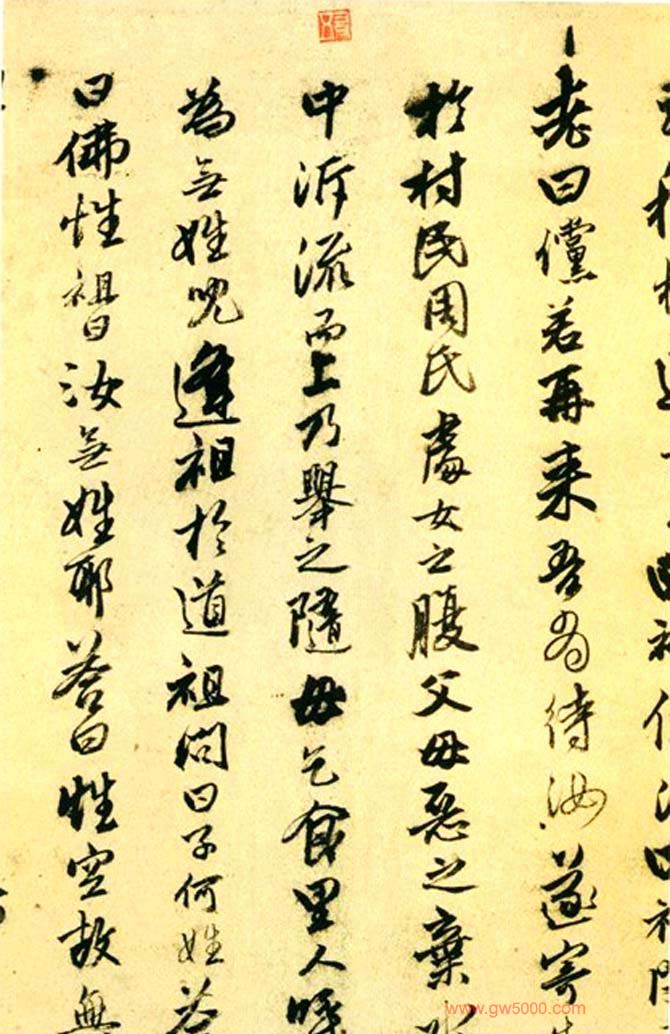 老曰儻若再来吾尚待汝遂寄
於村民周氏處女之腹父母惡之棄水
中泝流而上乃舉之隨母乞食里人呼
為無姓兒逢祖於道祖問曰子何姓答
曰佛性祖曰汝無姓耶答曰性空故無
www.gw5000.com